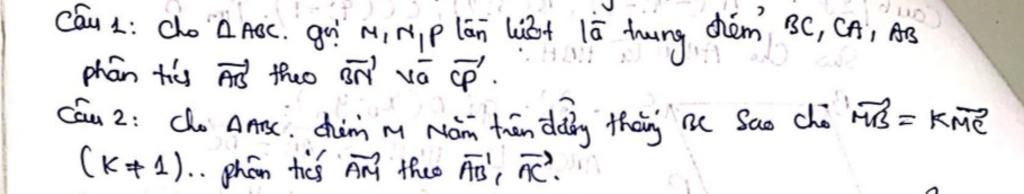 Câu 1: Cho ΔABC. gọi M, N, P lần lượt là trung điểm BC, CA, AB
phân tích \(\overrightarrow{AB}\) theo \(\overrightarrow{BN}\) và \(\overrightarrow{CP}\).
Câu 2: Cho ΔABC. điểm M nằm trên đường thẳng BC sao cho \(\overrightarrow{MB}\) = K\(\overrightarrow{MC}\)
(K ≠ 1).. phân tích \(\overrightarrow{AM}\) theo \(\overrightarrow{AB}\), \(\overrightarrow{AC}\).